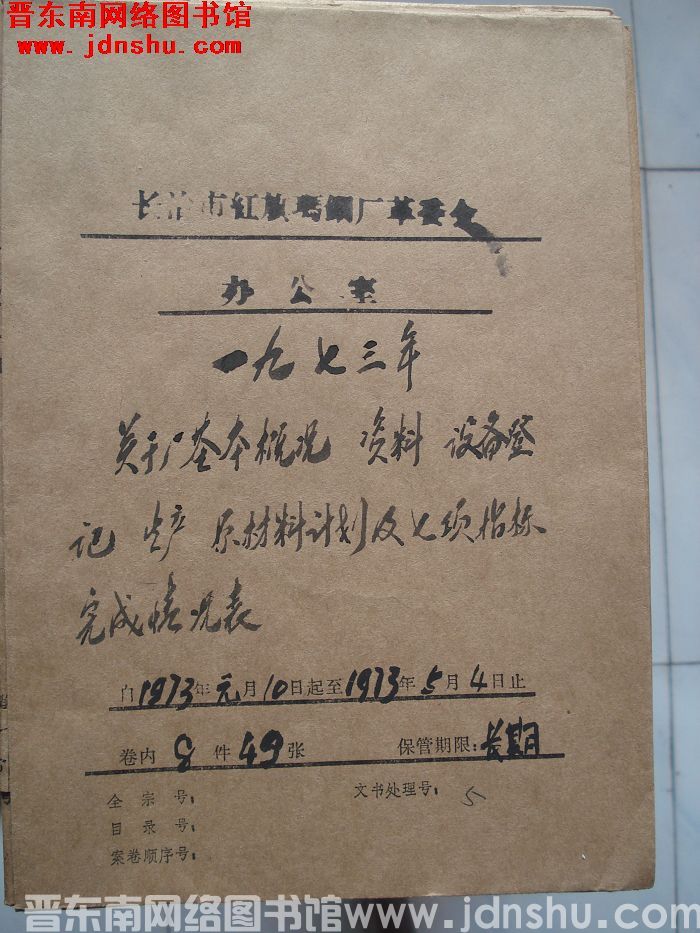 晋东南网络图书馆
www.jdnshu.com
长治市红旗玛钢厂革委会
办公室
一九七三年
关于厂基本概况 资料 设备登
记 生产 原材料计划及七项指标
完成情况表
自1973年元月10日起至1973年5月4日止
卷内8件49张 保管期限:长期
全宗号: 文书处理号: 5
目录号:
案卷顺序号:
晋东南网络图书馆www.jdnshu.com